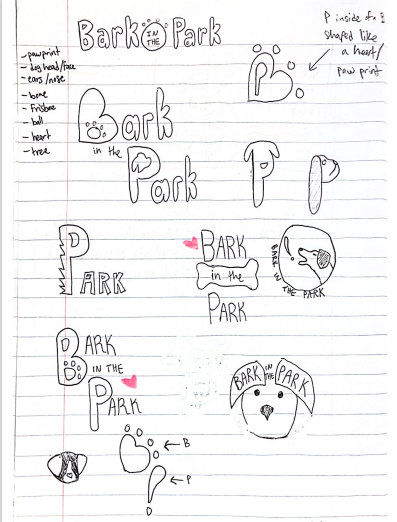 Bark IN THE Park
P inside of a B
shaped like
a heart/
paw print
- pawprint
- dog head/face
- ears/nose
- bone
- Frisbee
- ball
- heart
- tree
P B
Bark
in the
Park
P P
PARK
BARK
in the
PARK
BARK IN THE PARK
BARK
IN THE
PARK
BARK IN THE PARK
← B
← P